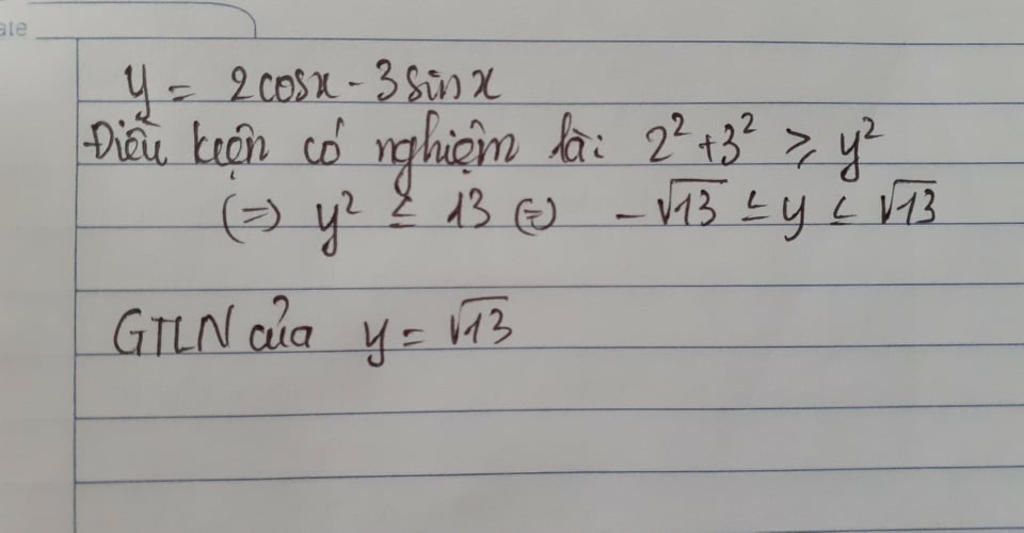 ate
y = 2cosx - 3sinx
Điều kiện có nghiệm là: 2² + 3² ≥ y²
(=) y² ≤ 13 (=) -√13 ≤ y ≤ √13
GTLN của y = √13